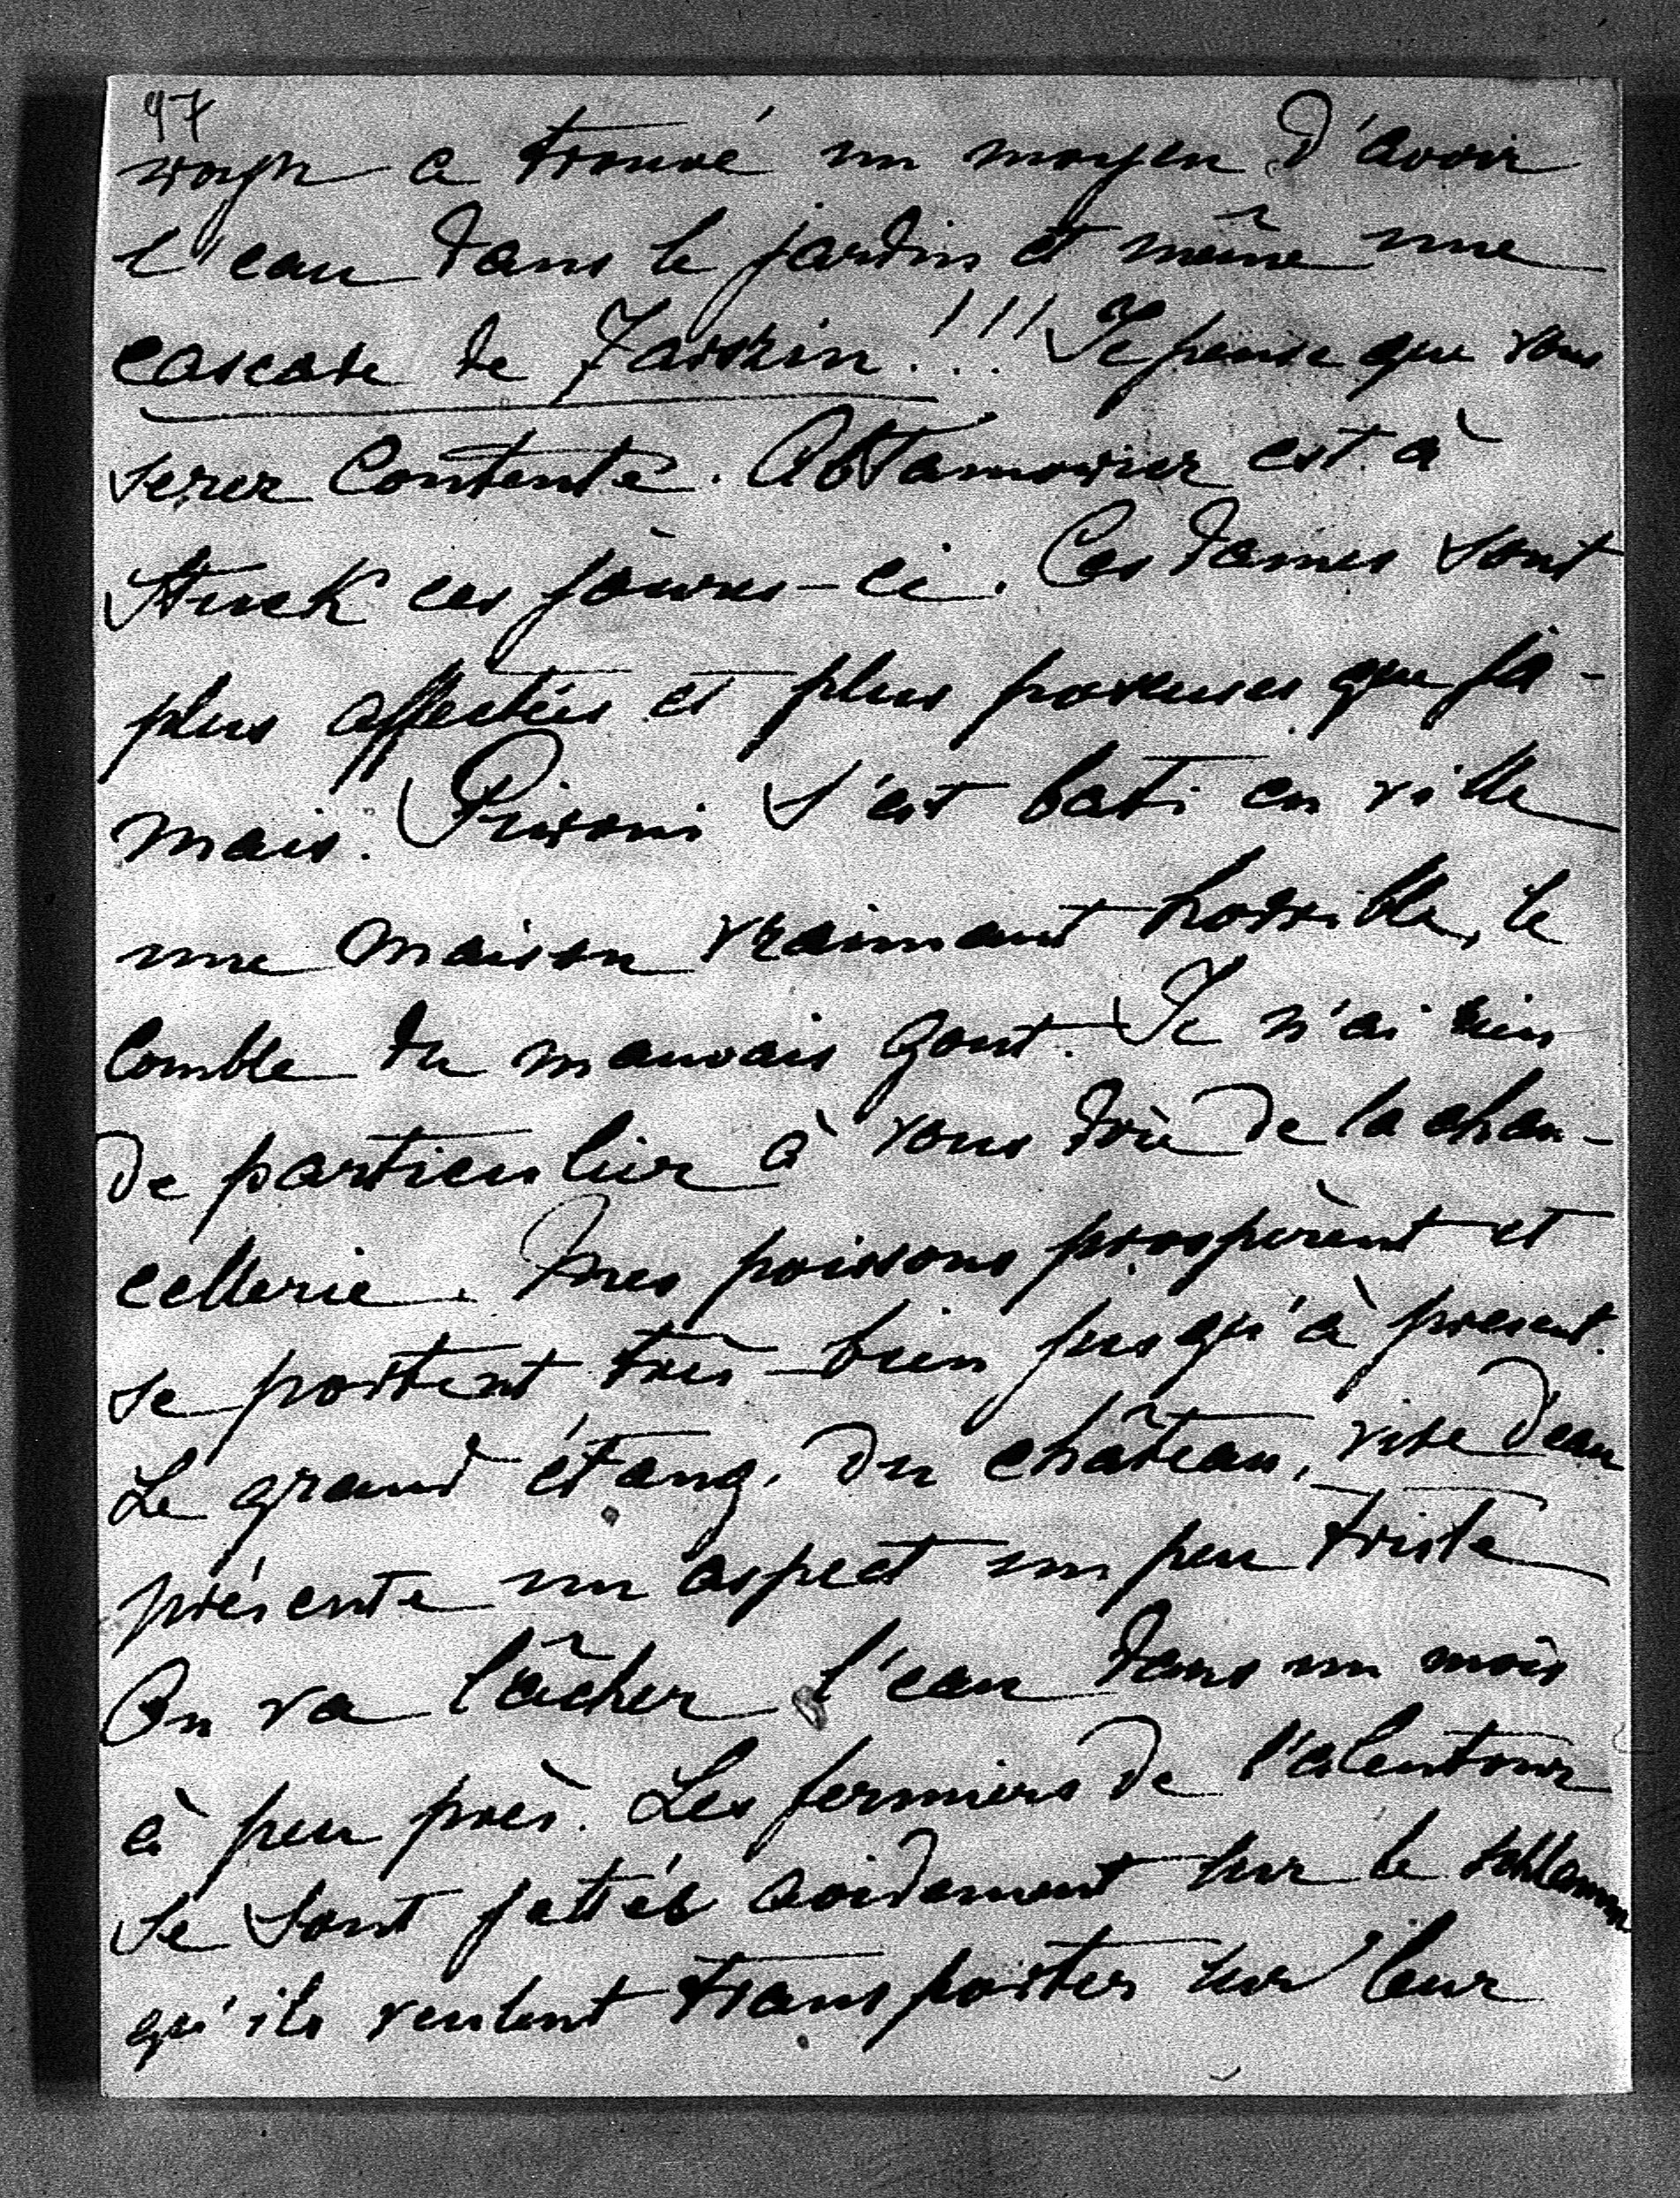 97
a trouvé un moyen d'avoir
l'eau dans le jardin et même une
cascade de !!! Je pense que vous
serez contente. est à
ces jours-ci. Ces dames sont
plus affectées et plus poseuses que ja-
mais. s'est bati en ville
une maison vraimant horrible, le
comble du mauvais gout. Je n'ai rien
de particulier à vous dire de la chan-
cellerie. Mes poissons prospèrent et
se portent très-bien jusqu'à present.
Le grand étang, du château, vide d'eau
présente un aspect un peu triste
On va lâcher l'eau dans un mois
à peu près. Les fermiers de l'alentour
se sont jettés avidemont sur le schlamm
qu'ils veulent transporter sur leur